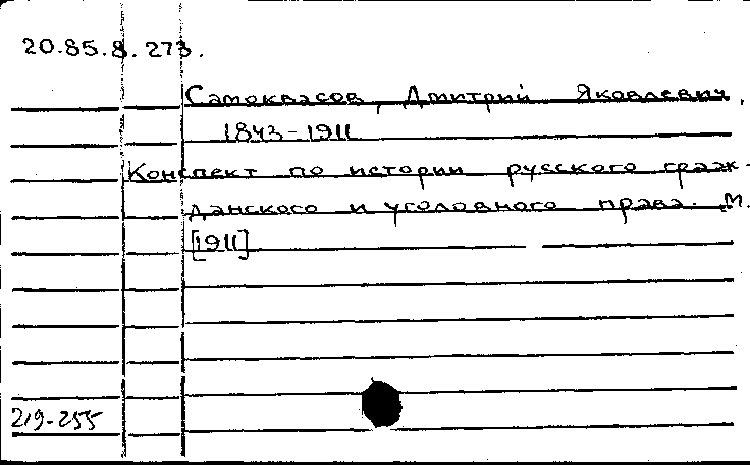 20.85.8.273.
Самоквасов, Дмитрий Яковлевич,
1843-1911
Конспект по истории русского граж-
данского и уголовного права. М.
[1911]
219-255